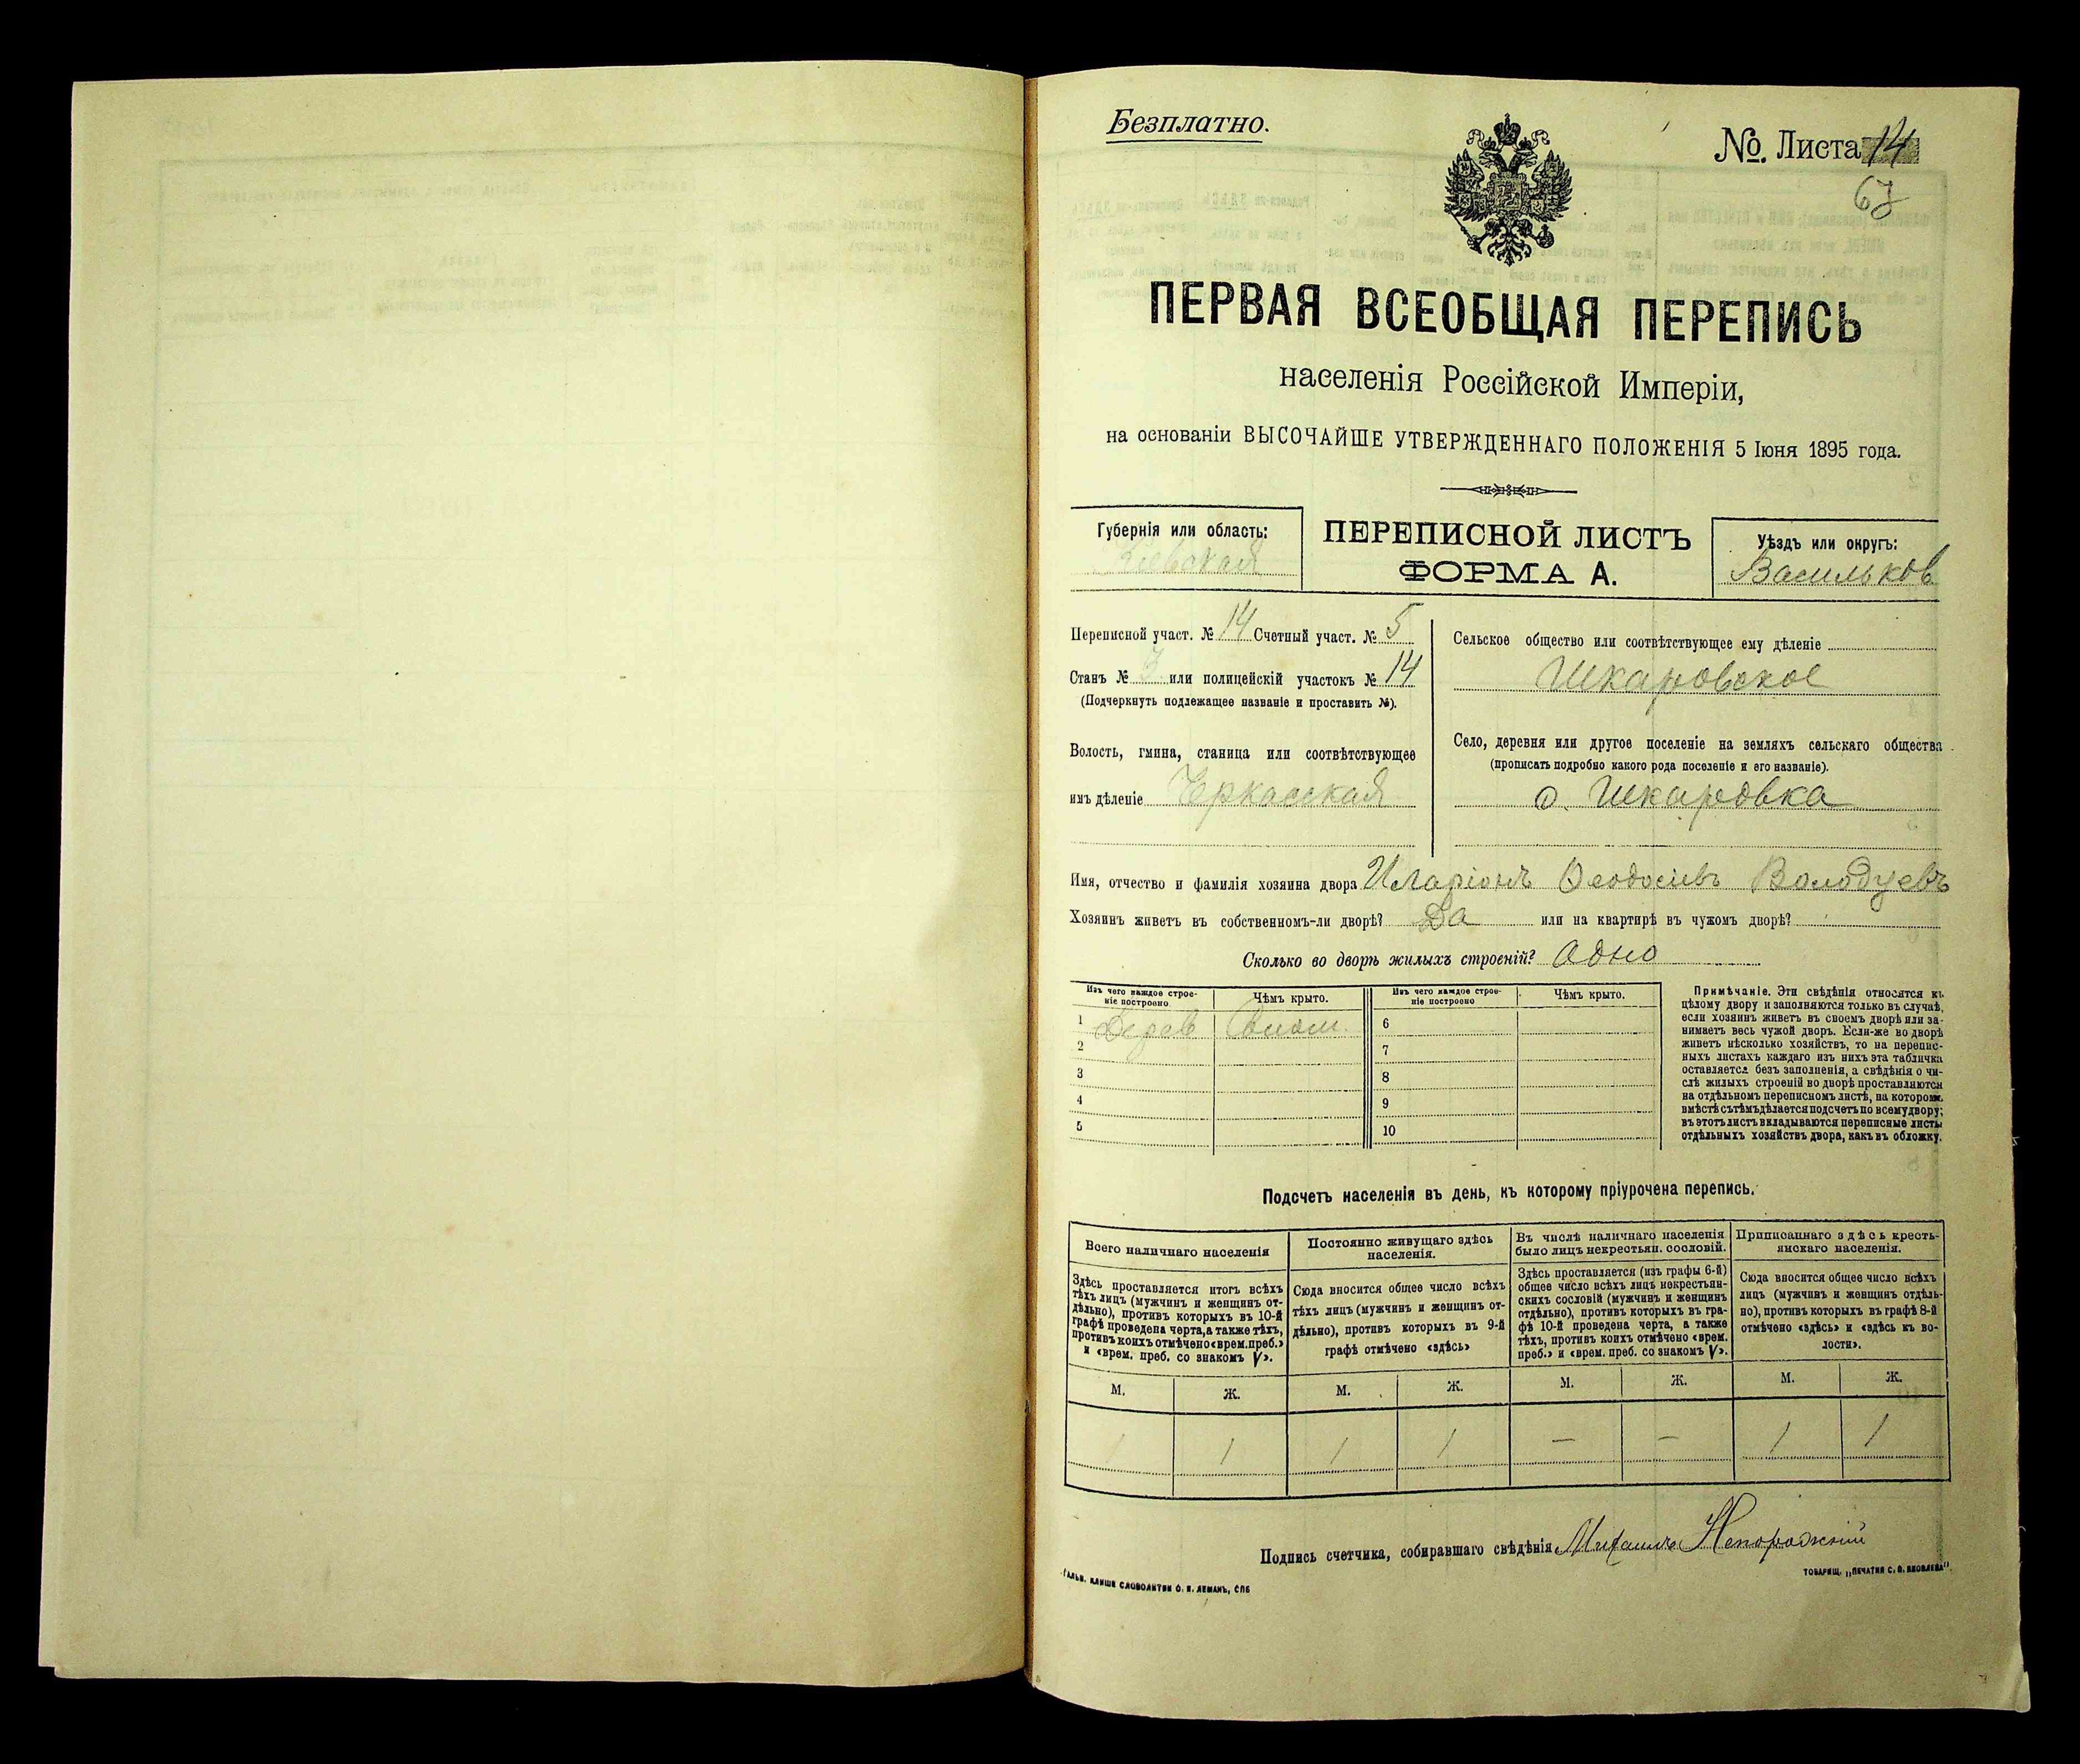 Безплатно.
№ Листа 14
67
ПЕРВАЯ ВСЕОБЩАЯ ПЕРЕПИСЬ
населенія Россійской Имперіи,
на основаніи ВЫСОЧАЙШЕ УТВЕРЖДЕННАГО ПОЛОЖЕНІЯ 5 Іюня 1895 года.
Губернія или область:
Кіевская
ПЕРЕПИСНОЙ ЛИСТЪ
ФОРМА А.
Уѣздъ или округъ:
Васильков
Переписной участ. № 14 Счетный участ. № 5
Станъ № 3 или полицейскій участокъ № 14
(Подчеркнуть подлежащее названіе и проставить №).
Волость, гмина, станица или соотвѣтствующее
имъ дѣленіе Черкасская
Сельское общество или соотвѣтствующее ему дѣленіе
Шкаровское
Село, деревня или другое поселеніе на земляхъ сельскаго общества
(прописать подробно какого рода поселеніе и его названіе).
с. Шкаровка
Имя, отчество и фамилія хозяина двора Иларіонъ Феодосіевъ
Хозяинъ живетъ въ собственномъ-ли дворѣ? Да или на квартирѣ въ чужомъ дворѣ?
Сколько во дворѣ жилыхъ строеній? Одно
Изъ чего каждое строе-
ніе построено
Чѣмъ крыто.
Изъ чего каждое строе-
ніе построено
Чѣмъ крыто.
1 Дерев
2
3
4
5
6
7
8
9
10
Примѣчаніе. Эти свѣдѣнія относятся къ
цѣлому двору и заполняются только въ случаѣ,
если хозяинъ живетъ въ своемъ дворѣ или за-
нимаетъ весь чужой дворъ. Если-же во дворѣ
живетъ нѣсколько хозяйствъ, то на перепис-
ныхъ листахъ каждаго изъ нихъ эта табличка
оставляется безъ заполненія, а свѣдѣнія о чи-
слѣ жилыхъ строеній во дворѣ проставляются
на отдѣльномъ переписномъ листѣ, на которомъ
вмѣстѣ съ тѣмъ дѣлается подсчетъ по всему двору;
въ этотъ листъ вкладываются переписные листы
отдѣльныхъ хозяйствъ двора, какъ въ обложку.
Подсчетъ населенія въ день, къ которому пріурочена перепись.
Всего наличнаго населенія
Здѣсь проставляется итогъ всѣхъ
тѣхъ лицъ (мужчинъ и женщинъ от-
дѣльно), противъ которыхъ въ 10-й
графѣ проведена черта, а также тѣхъ,
противъ коихъ отмѣчено «врем. преб.»
и «врем. преб. со знакомъ V».
Постоянно живущаго здѣсь
населенія.
Сюда вносится общее число всѣхъ
тѣхъ лицъ (мужчинъ и женщинъ от-
дѣльно), противъ которыхъ въ 9-й
графѣ отмѣчено «здѣсь»
Въ числѣ наличнаго населенія
было лицъ некрестьян. сословій.
Здѣсь проставляется (изъ графы 6-й)
общее число всѣхъ лицъ некрестьян-
скихъ сословій (мужчинъ и женщинъ
отдѣльно), противъ которыхъ въ гра-
фѣ 10-й проведена черта, а также
тѣхъ, противъ коихъ отмѣчено «врем.
преб.» и «врем. преб. со знакомъ V».
Приписаннаго здѣсь кресть-
янскаго населенія.
Сюда вносится общее число всѣхъ
лицъ (мужчинъ и женщинъ отдѣль-
но), противъ которыхъ въ графѣ 8-й
отмѣчено «здѣсь» и «здѣсь къ во-
лости».
М. Ж. М. Ж. М. Ж. М. Ж.
1 1 1 1 — — 1 1
Подпись счетчика, собиравшаго свѣдѣнія Михаилъ Непорожній
ГАЛЬВ. КЛИШЕ СЛОВОЛИТНИ О. И. ЛЕМАНЪ, СПБ
ТОВАРИЩ. „ПЕЧАТНЯ С. П. ЯКОВЛЕВА".